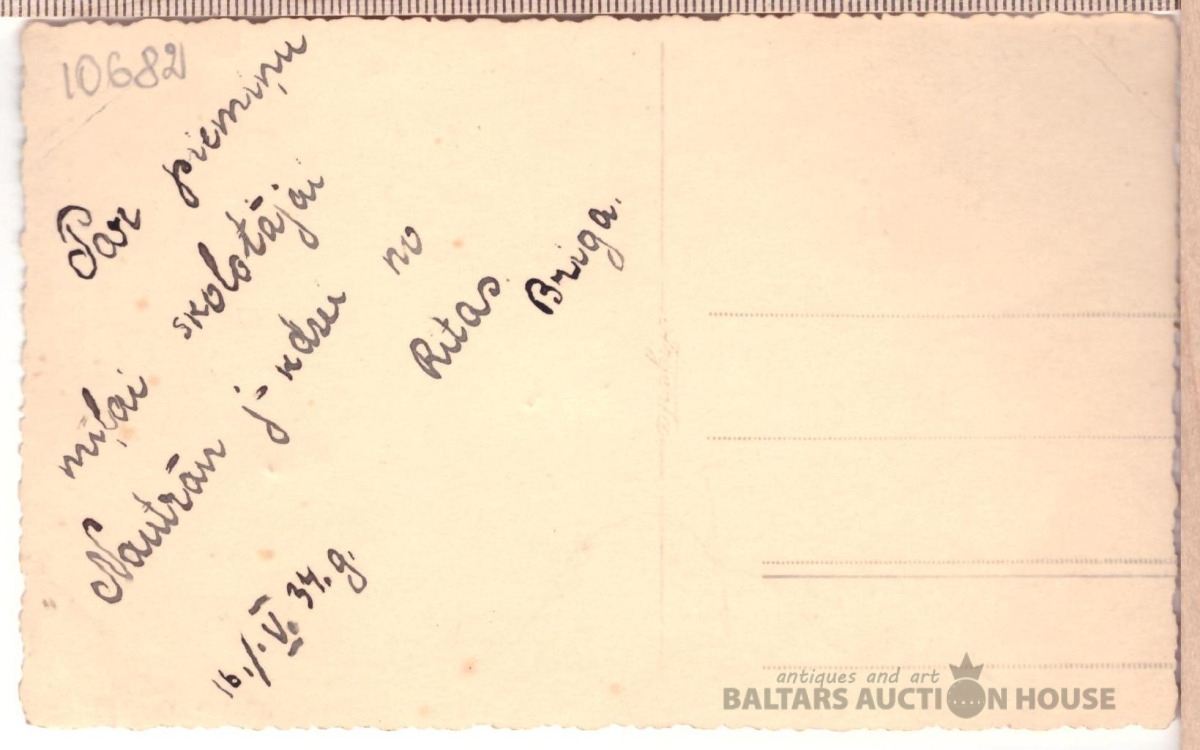 10682
Par piemiņu
mīļai skolotājai
Nautrān j-kdzei no
Ritas Briga.
16./V. 34. g.
antiques and art
BALTARS AUCTION HOUSE